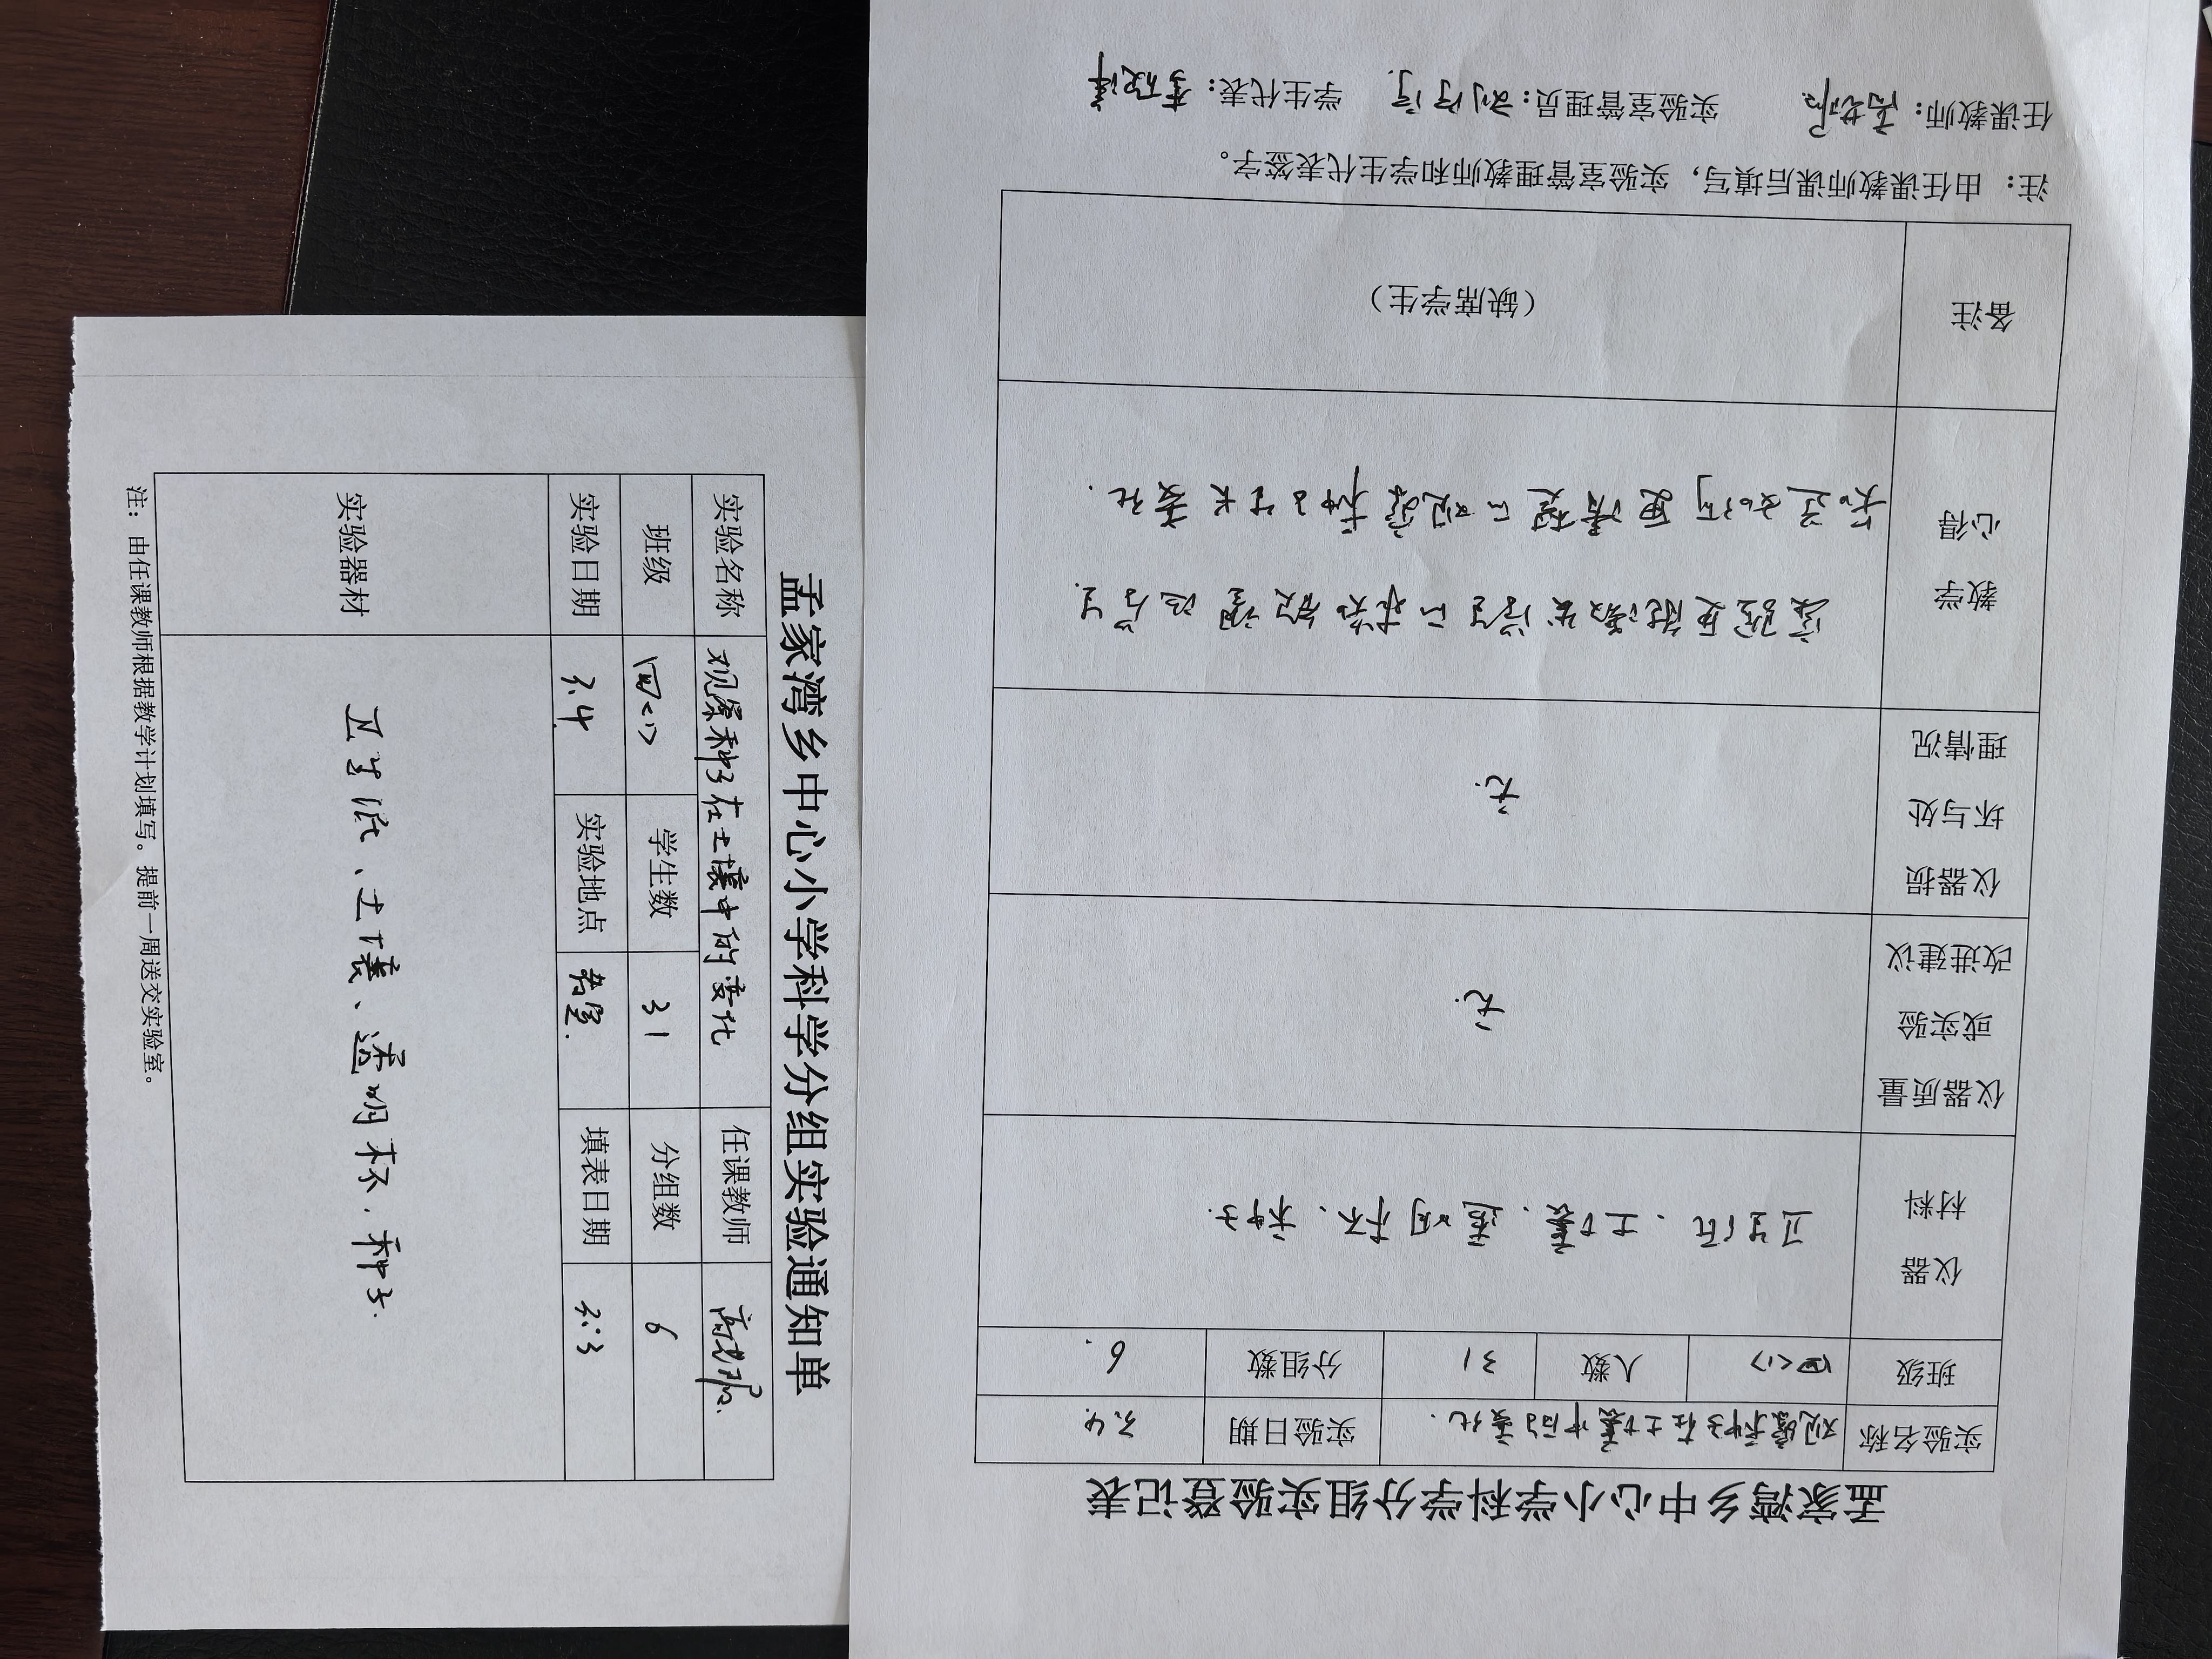 孟家湾乡中心小学科学分组实验通知单
实验名称 观察种子在土壤中的变化 任课教师
班级 四<1> 学生数 31 分组数 6
实验日期 3.4 实验地点 教室. 填表日期 3.3
实验器材 卫生纸、土壤、透明杯、种子.
注：由任课教师根据教学计划填写。提前一周送交实验室。
孟家湾乡中心小学科学分组实验登记表
实验名称 观察种子在土壤中的变化. 实验日期 3.4
班级 四<1> 人数 31 分组数 6.
仪器
材料
卫生纸、土壤、透明杯、种子.
仪器质量
或实验
改进建议
无.
仪器损
坏与处
理情况
无.
教学
心得
实验更能激发学生的求知欲望 让学生
知道如何更清楚的观察种子生长变化.
备注 （缺席学生）
注：由任课教师课后填写，实验室管理教师和学生代表签字。
任课教师： 实验室管理员： 学生代表：